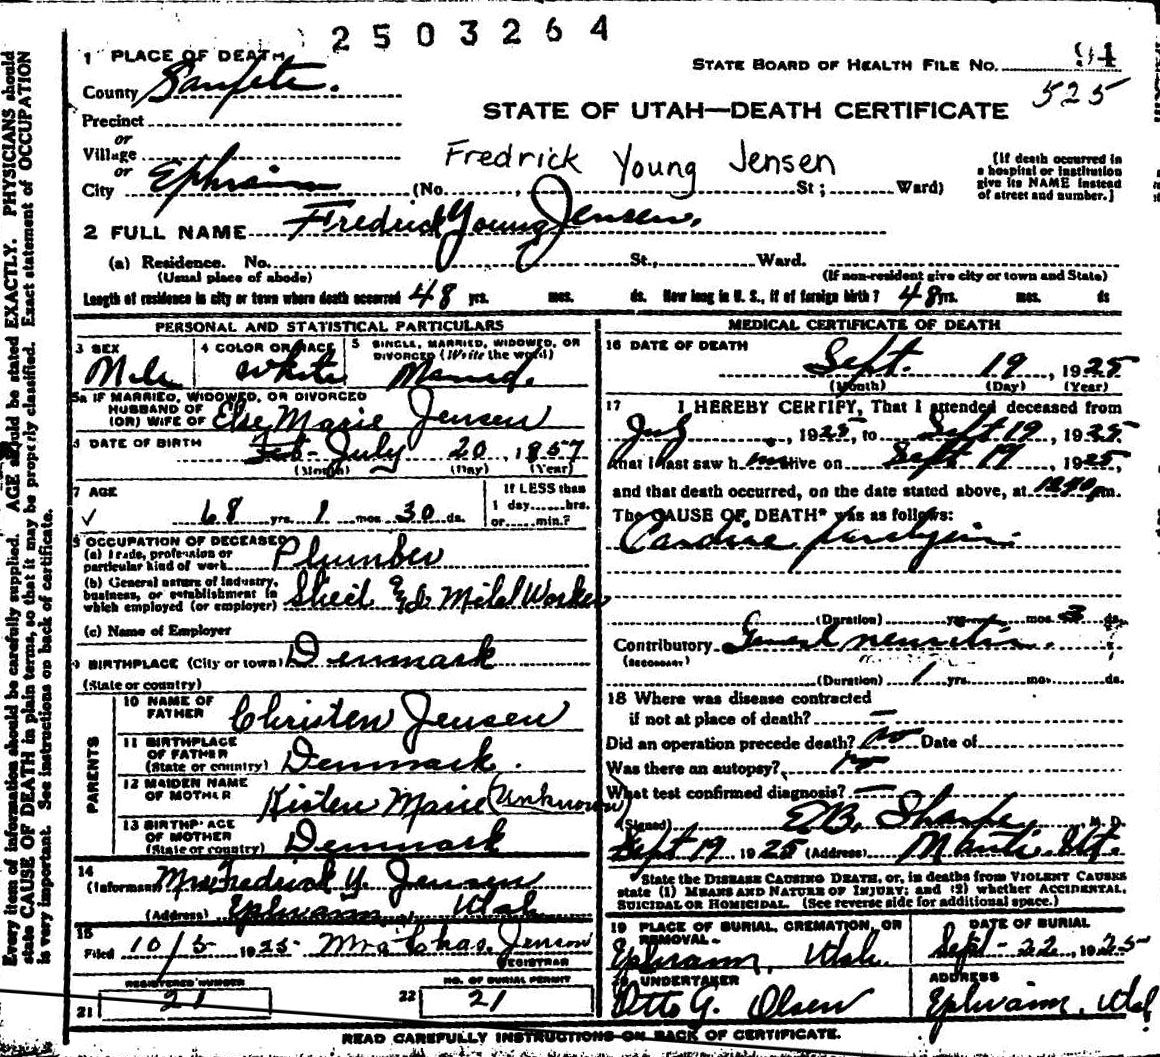 2503264
1 PLACE OF DEATH
STATE BOARD OF HEALTH FILE NO. 94
County Sanpete.
525
STATE OF UTAH—DEATH CERTIFICATE
Precinct
or
Village
or
City Ephraim (No. , St; Ward)
Fredrick Young Jensen
[If death occurred in
a hospital or institution
give its NAME instead
of street and number.]
2 FULL NAME Fredrick Young Jensen.
(a) Residence. No. St., Ward.
(Usual place of abode) (If non-resident give city or town and State)
Length of residence in city or town where death occurred 48 yrs. mos. ds. How long in U. S., if of foreign birth? 48 yrs. mos. ds
PERSONAL AND STATISTICAL PARTICULARS
3 SEX
Male
4 COLOR OR RACE
White
5 SINGLE, MARRIED, WIDOWED, OR
DIVORCED (Write the word)
Married.
5a IF MARRIED, WIDOWED, OR DIVORCED
HUSBAND OF
(OR) WIFE OF Else Marie Jensen
DATE OF BIRTH Feb. July 20, 1857
(Month) (Day) (Year)
7 AGE
68 yrs. 1 mos. 30 ds.
If LESS than
1 day......hrs.
or......min.?
OCCUPATION OF DECEASED
(a) Trade, profession or
particular kind of work Plumber
(b) General nature of industry,
business, or establishment in
which employed (or employer)
(c) Name of Employer
9 BIRTHPLACE (City or town) Denmark
(State or country)
PARENTS
10 NAME OF
FATHER Christen Jensen
11 BIRTHPLACE
OF FATHER
(State or country) Denmark.
12 MAIDEN NAME
OF MOTHER Kisten Marie (Unknown)
13 BIRTHPLACE
OF MOTHER
(State or country) Denmark
14
(Informant) Mrs Fredrick Y. Jensen
(Address) Ephraim, Utah
15
Filed 10/5 1925 Mrs Chas. Jensen
REGISTRAR
REGISTERED NUMBER
21 21
NO. OF BURIAL PERMIT
22 21
MEDICAL CERTIFICATE OF DEATH
16 DATE OF DEATH
Sept. 19, 1925
(Month) (Day) (Year)
17 I HEREBY CERTIFY, That I attended deceased from
, 1925, to Sept 19, 1925.
that I last saw him alive on Sept 19, 1925,
and that death occurred, on the date stated above, at m.
The CAUSE OF DEATH* was as follows:
Cardiac paralysis.
(Duration) yrs. mos. 3 ds.
Contributory General neuritis.
(SECONDARY)
(Duration) 1 yrs. mo. ds.
18 Where was disease contracted
if not at place of death? —
Did an operation precede death? no Date of
Was there an autopsy? no
What test confirmed diagnosis? —
(Signed) M. D.
Sept 19 1925 (Address) Manti Ut.
*State the DISEASE CAUSING DEATH, or, in deaths from VIOLENT CAUSES
state (1) MEANS AND NATURE OF INJURY; and (2) whether ACCIDENTAL,
SUICIDAL OR HOMICIDAL. (See reverse side for additional space.)
19 PLACE OF BURIAL, CREMATION, OR
REMOVAL
Ephraim, Utah.
DATE OF BURIAL
Sept - 22, 1925
20 UNDERTAKER
Otto G. Olsen
ADDRESS
Ephraim, Utah
READ CAREFULLY INSTRUCTIONS ON BACK OF CERTIFICATE.
Every item of information should be carefully supplied. AGE should be stated EXACTLY. PHYSICIANS should
state CAUSE OF DEATH in plain terms, so that it may be properly classified. Exact statement of OCCUPATION
is very important. See instructions on back of certificate.